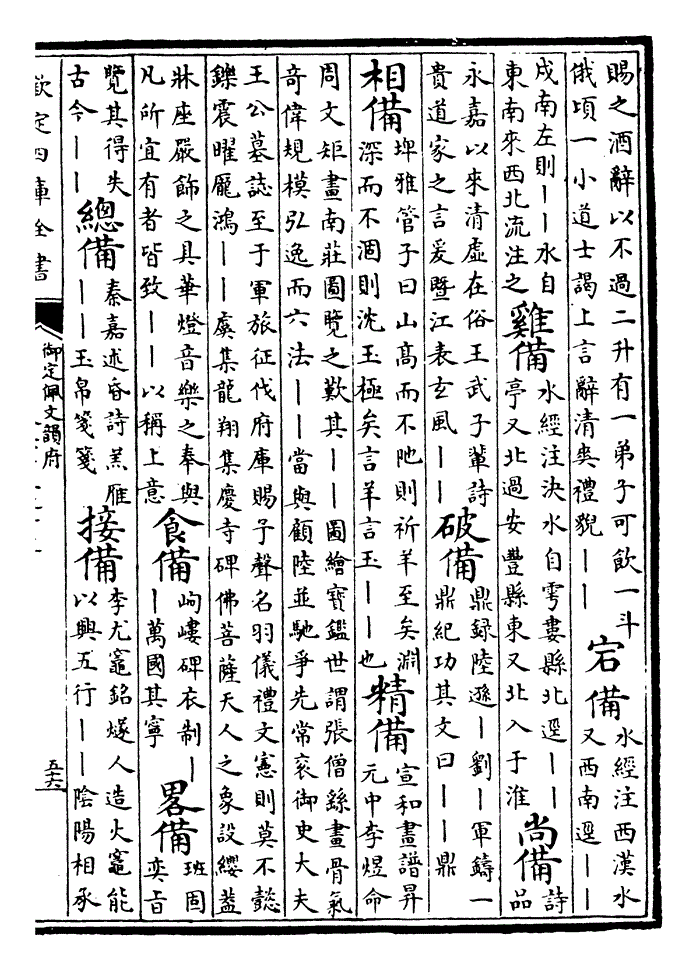 賜之酒辭以不過二升有一弟子可飲一斗
俄頃一小道士謁上言辭清爽禮貌——
宕備
水經注西漢水
又西南逕——
戍南左則——水自
東南來西北流注之
雞備
水經注決水自雩婁縣北逕——
亭又北過安豐縣東又北入于淮
尚備
詩
品
永嘉以來清虛在俗王武子輩詩
貴道家之言爰暨江表玄風——
破備
鼎録陸遜—劉—軍鑄一
鼎紀功其文曰——鼎
相備
埤雅管子曰山高而不阤則祈羊至矣淵
深而不涸則沈玉極矣言羊言玉——也
精備
宣和畫譜昇
元中李煜命
周文矩畫南莊圖覽之歎其——圖繪寶鑑世謂張僧繇畫骨氣
奇偉規模弘逸而六法——當與顧陸並馳爭先常衮御史大夫
王公墓誌至于軍旅征伐府庫賜予聲名羽儀禮文憲則莫不懿
鑠震曜龎鴻——虞集龍翔集慶寺碑佛菩薩天人之象設纓葢
牀座嚴飾之具華燈音樂之奉與
凡所宜有者皆致——以稱上意
食備
岣嶁碑衣制—
—萬國其寧
畧備
班固
奕旨
覽其得失
古今——
總備
秦嘉述昏詩羔雁
——玉帛箋箋
接備
李尤竈銘燧人造火竈能
以興五行——陰陽相承
欽定四庫全書
御定佩文韻府
五六